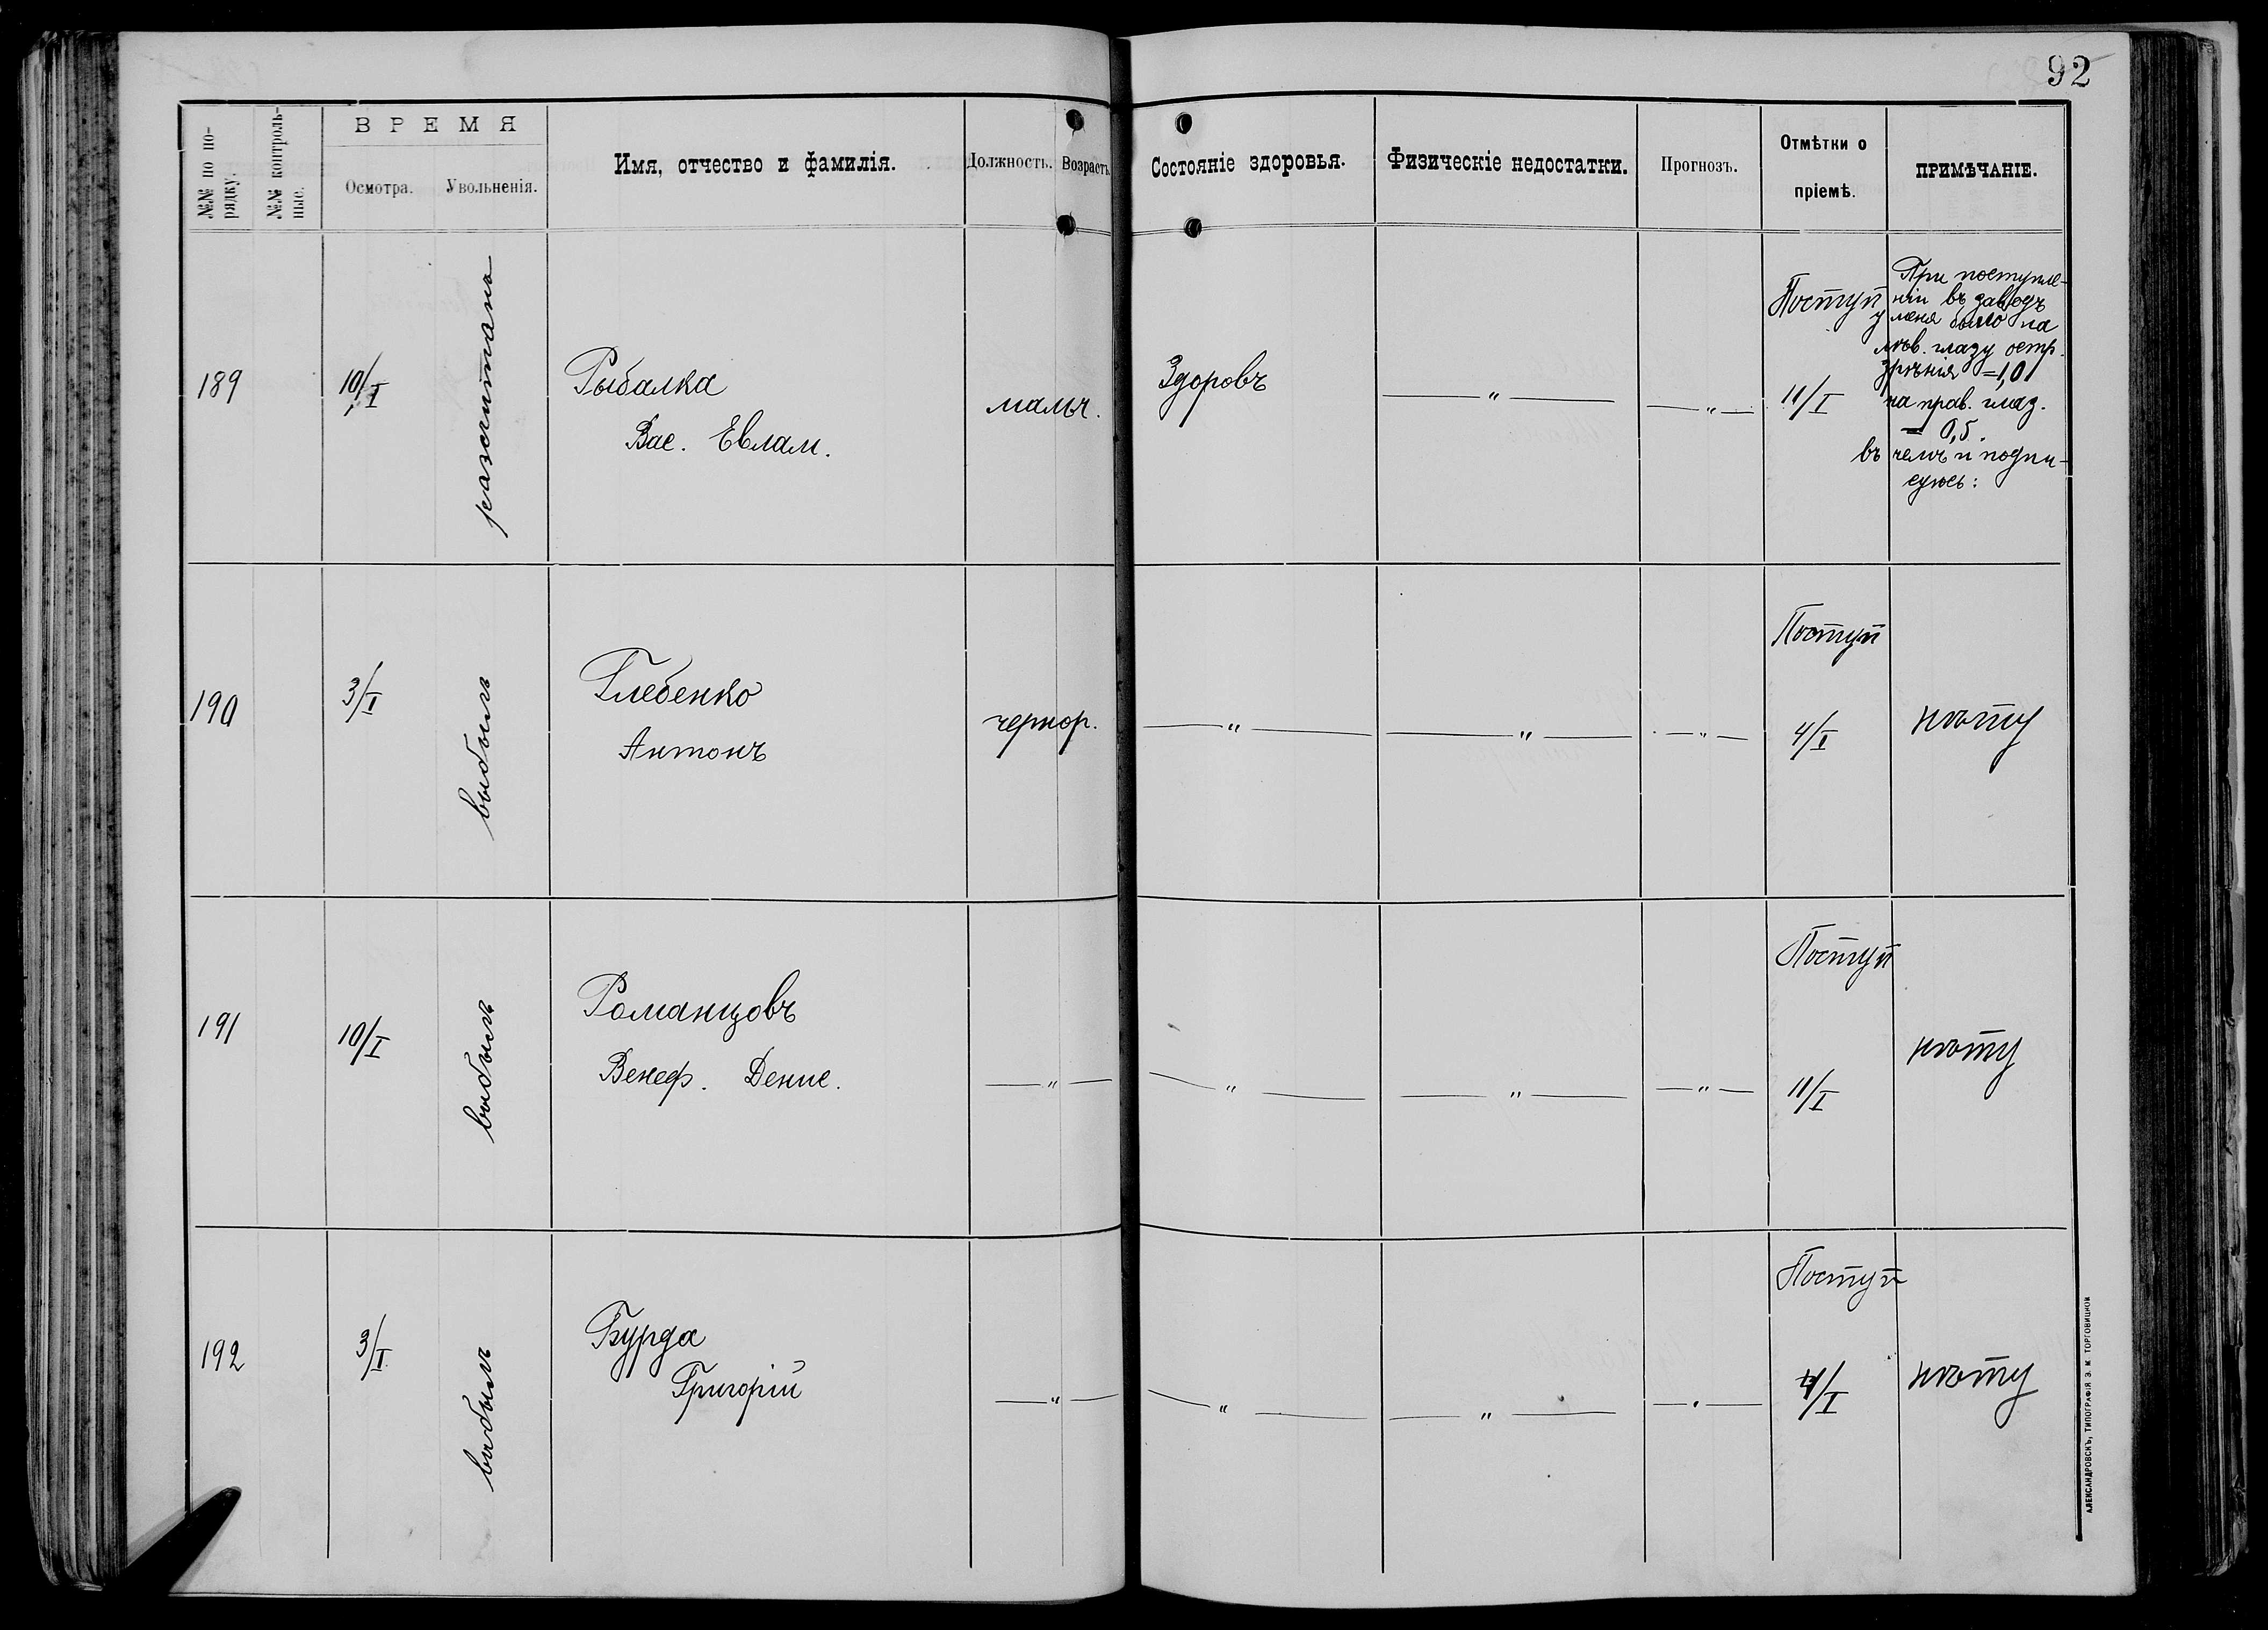 92
№№ по по-
рядку.
№№ контроль-
ные.
ВРЕМЯ
Осмотра.
Увольненія.
Имя, отчество и фамилія.
Должность.
Возрастъ
Состояніе здоровья.
Физическіе недостатки.
Прогнозъ.
Отмѣтки о
пріемѣ.
ПРИМѢЧАНІЕ.
189
10/I
разсчитанъ
Рыбалка
Вас. Евлам.
мальч.
Здоровъ
— " —
— " —
Поступ
11/I
При поступле-
ніи въ заводъ
у меня было на
лѣв. глазу остр.
зрѣнія =1,0
на прав. глаз.
= 0,5.
въ чемъ и подпи-
суюсь:
190
3/I
выбылъ
Глебенко
Антонъ
чернор.
— " —
— " —
— " —
Поступ
4/I
нѣту
191
10/I
выбылъ
Романцовъ
Венеф. Денис.
— " —
— " —
— " —
— " —
Поступ
11/I
нѣту
192
3/I
выбылъ
Бурда
Григорій
— " —
— " —
— " —
— " —
Поступ
4/I
нѣту
АЛЕКСАНДРОВСКЪ, ТИПОГРАФІЯ Э. М. ТОРГОВИЦКОЙ